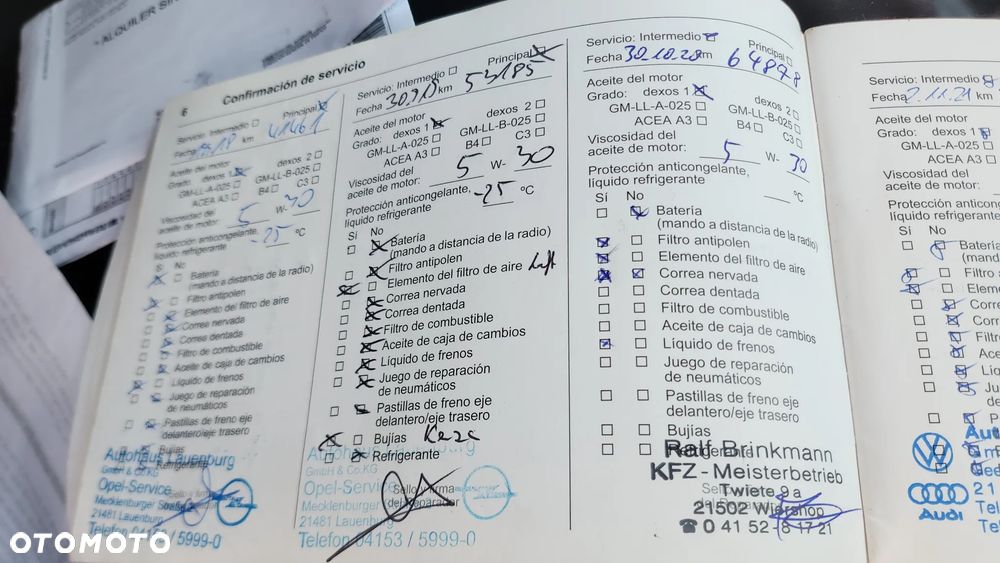 "ALQUILER SIN
6 Confirmación de servicio
Servicio: Intermedio Principal
Fecha km 41461
Aceite del motor
Grado: dexos 1 dexos 2
GM-LL-A-025 GM-LL-B-025
ACEA A3 B4 C3
Viscosidad del
aceite de motor: 5 W- 30
Protección anticongelante, -25 °C
líquido refrigerante
Sí No
Batería
(mando a distancia de la radio)
Filtro antipolen
Elemento del filtro de aire
Correa nervada
Correa dentada
Filtro de combustible
Aceite de caja de cambios
Líquido de frenos
Juego de reparación
de neumáticos
Pastillas de freno eje
delantero/eje trasero
Bujías
Refrigerante
Autohaus Lauenburg
GmbH & Co.KG
Opel-Service
Mecklenburger Straße
21481 Lauenburg
Telefon 04153 / 5999-0
Servicio: Intermedio Principal
Fecha 30.9.19 km 53185
Aceite del motor
Grado: dexos 1 dexos 2
GM-LL-A-025 GM-LL-B-025
ACEA A3 B4 C3
Viscosidad del
aceite de motor: 5 W- 30
Protección anticongelante, -25 °C
líquido refrigerante
Sí No
Batería
(mando a distancia de la radio)
Filtro antipolen
Elemento del filtro de aire Luft
Correa nervada
Correa dentada
Filtro de combustible
Aceite de caja de cambios
Líquido de frenos
Juego de reparación
de neumáticos
Pastillas de freno eje
delantero/eje trasero
Bujías
Refrigerante
Autohaus Lauenburg
GmbH & Co.KG
Opel-Service
Sello y firma
del reparador
Mecklenburger
21481 Lauenburg
Telefon 04153 / 5999-0
Servicio: Intermedio Principal
Fecha 30.10.20 km 64878
Aceite del motor
Grado: dexos 1 dexos 2
GM-LL-A-025 GM-LL-B-025
ACEA A3 B4 C3
Viscosidad del
aceite de motor: 5 W- 30
Protección anticongelante,
líquido refrigerante °C
Sí No
Batería
(mando a distancia de la radio)
Filtro antipolen
Elemento del filtro de aire
Correa nervada
Correa dentada
Filtro de combustible
Aceite de caja de cambios
Líquido de frenos
Juego de reparación
de neumáticos
Pastillas de freno eje
delantero/eje trasero
Bujías
Refrigerante
Ralf Brinkmann
KFZ - Meisterbetrieb
Twiete 9 a
21502 Wiershop
☎ 0 41 52 - 8 17 21
Servicio: Intermedio
Fecha 2.11.21 km
Aceite del motor
Grado: dexos 1
GM-LL-A-025
ACEA A3
Viscosidad del
aceite de motor:
Protección antico
líquido refrigerante
Sí No
Batería
(mando
Filtro
Elem
Corr
Corr
Filtro
Ace
Líq
Ju
de
P
d
Aut
Audi
21
Tel
OTOMOTO